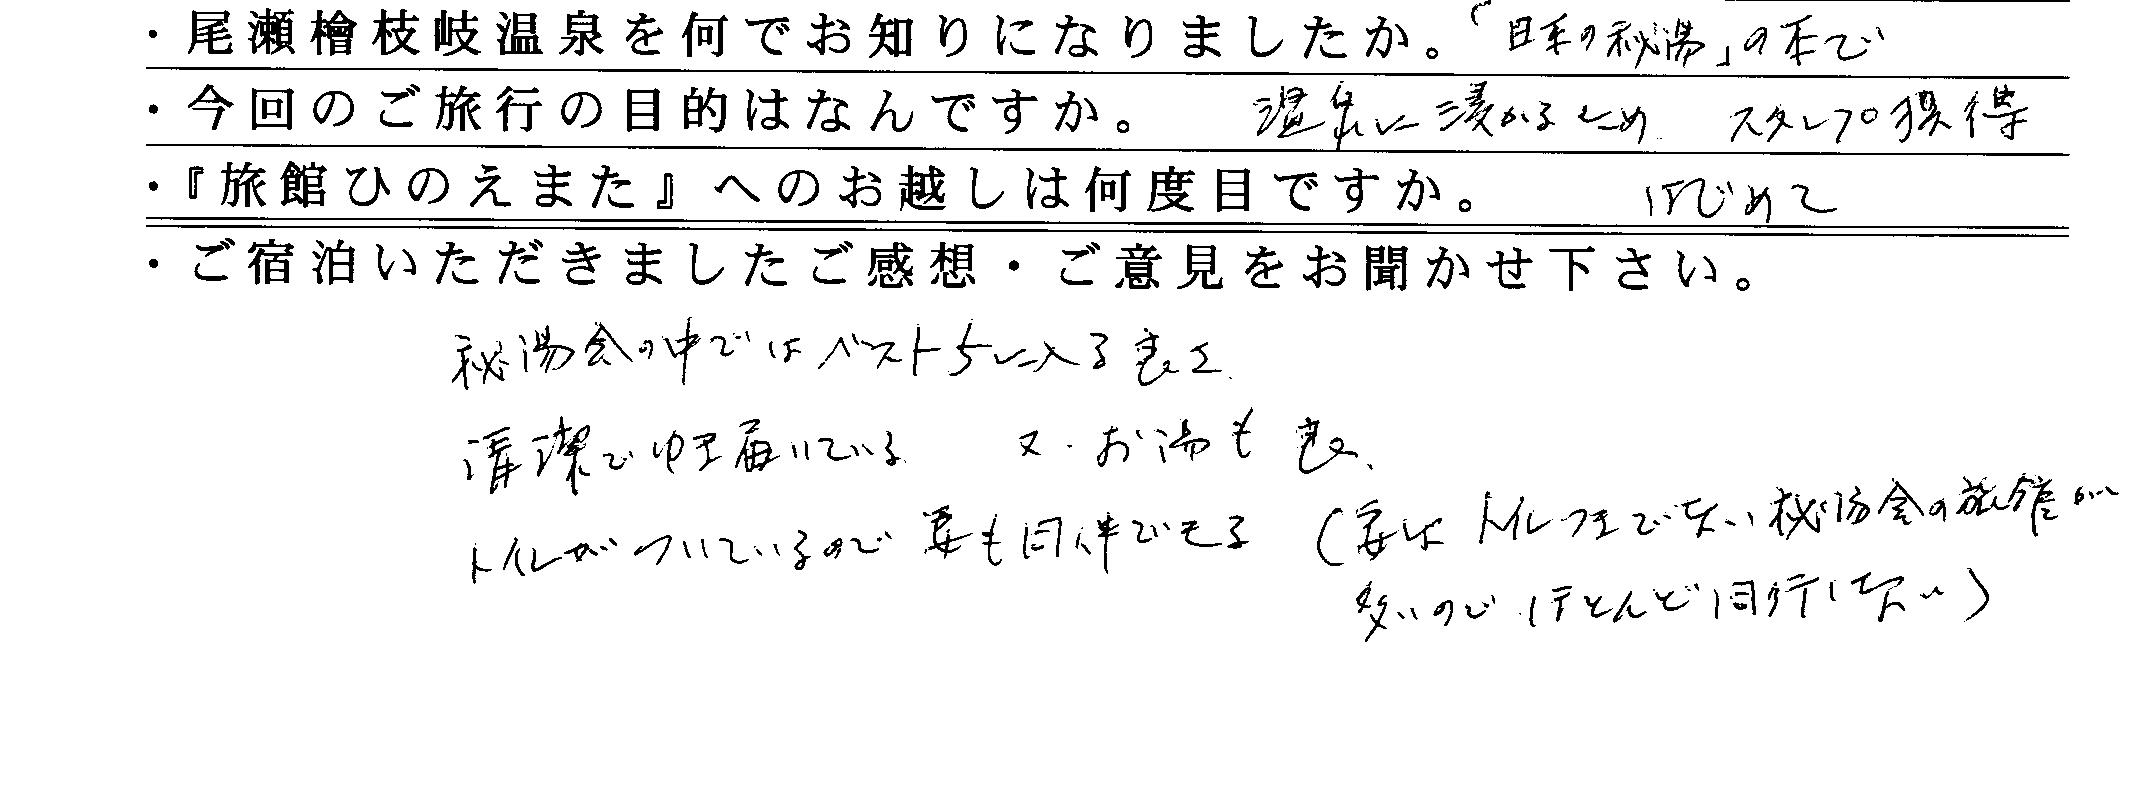 ・尾瀬檜枝岐温泉を何でお知りになりましたか。「日本の秘湯」の本で
・今回のご旅行の目的はなんですか。 温泉に浸かるため スタンプ獲得
・『旅館ひのえまた』へのお越しは何度目ですか。 はじめて
・ご宿泊いただきましたご感想・ご意見をお聞かせ下さい。
秘湯会の中ではベスト5に入る良さ
清潔でゆき届いている 又、お湯も良い
トイレがついているので妻も同伴できる (妻はトイレつきでない秘湯会の旅館が
多いのでほとんど同行しない)